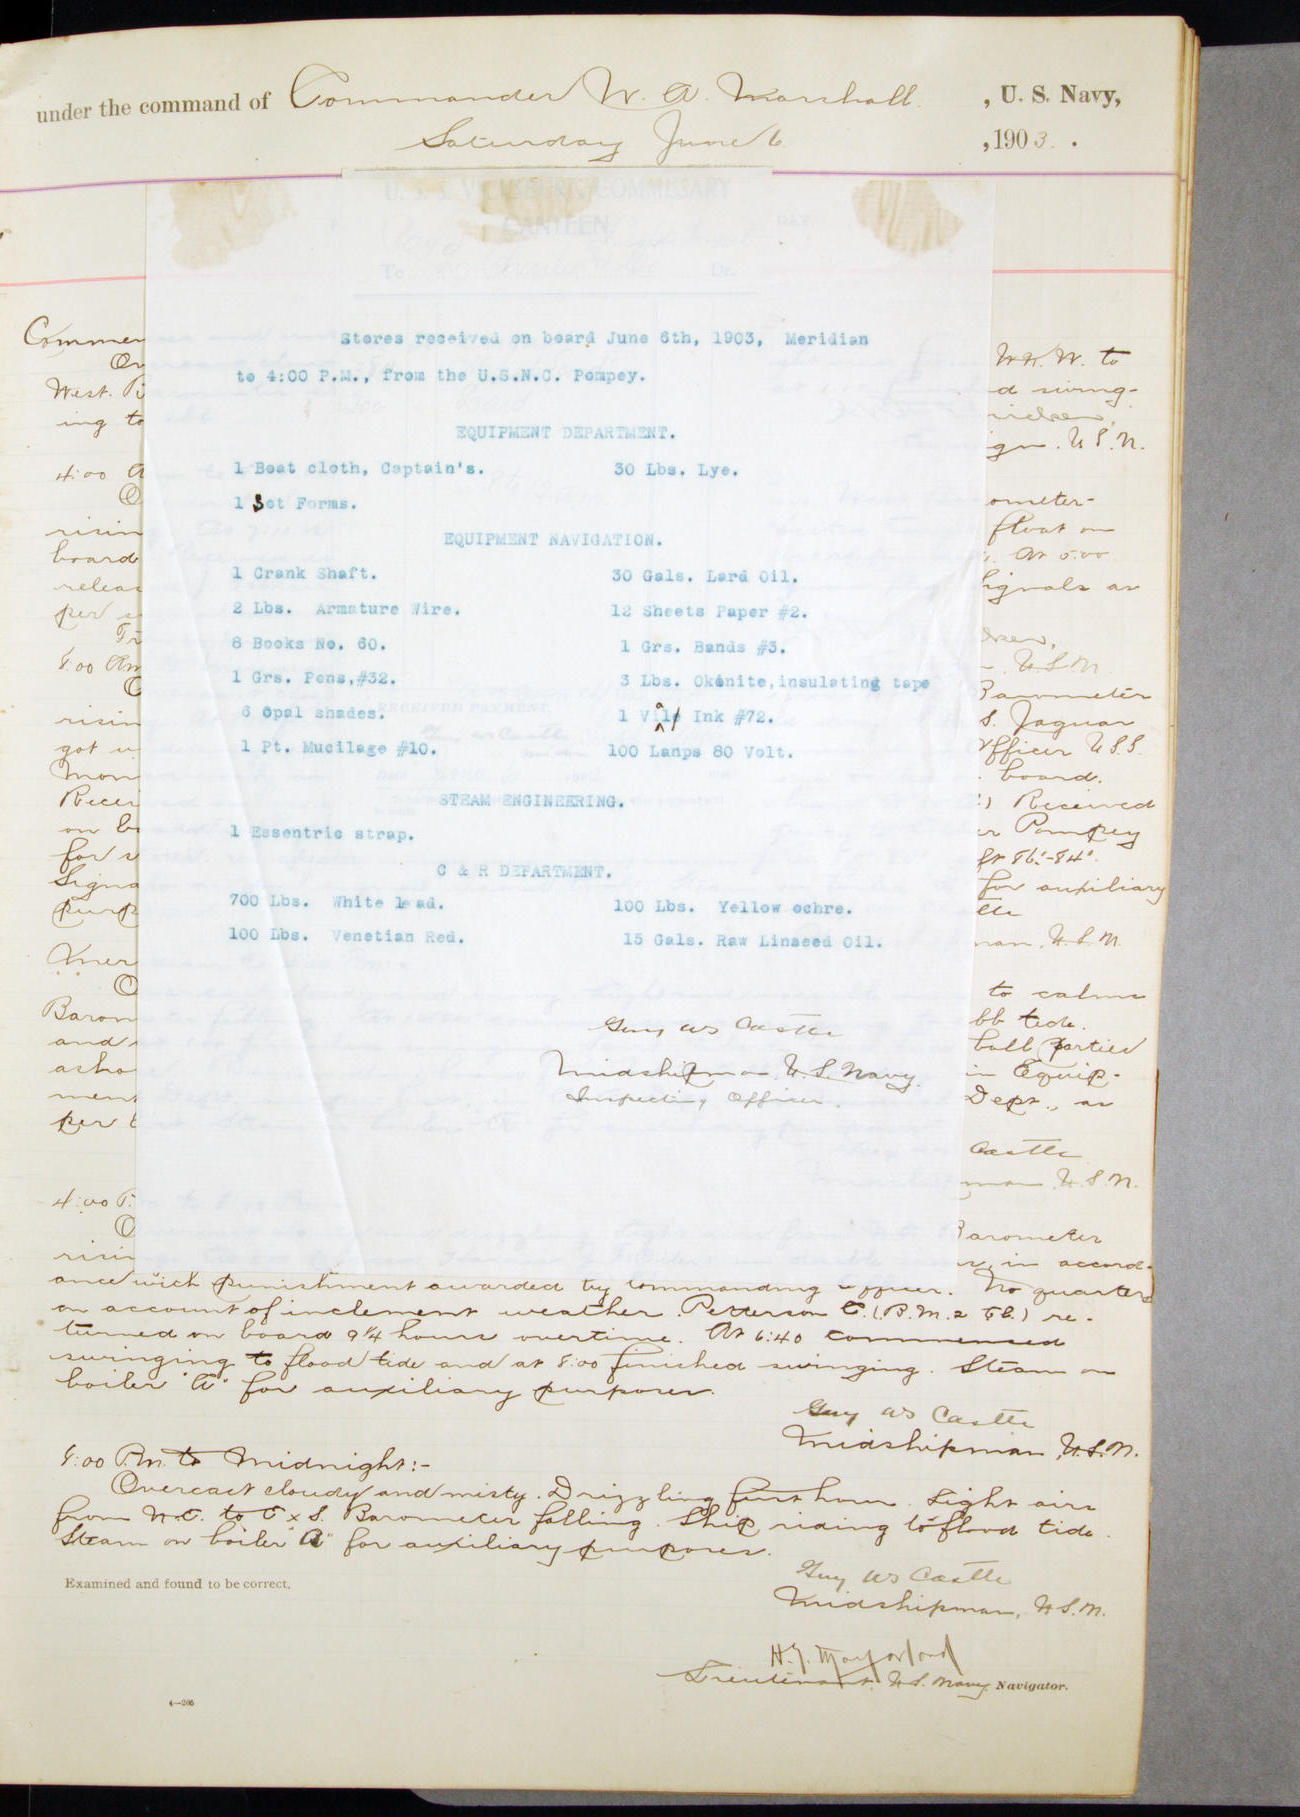 under the command of Commander W. A. Marshall , U. S. Navy,
Saturday June 6 , 1903 .
U. S. S. COMMISSARY
CANTEEN
DAY
To Dr.
Stores received on board June 6th, 1903, Meridian
to 4:00 P.M., from the U.S.N.C. Pompey.
EQUIPMENT DEPARTMENT.
1 Boat cloth, Captain's. 30 Lbs. Lye.
1 Set Forms.
EQUIPMENT NAVIGATION.
1 Crank Shaft. 30 Gals. Lard Oil.
2 Lbs. Armature Wire. 12 Sheets Paper #2.
8 Books No. 60. 1 Grs. Bands #3.
1 Grs. Pens,#32. 3 Lbs. Okonite,insulating tape
6 Opal shades. 1 Vial Ink #72.
RECEIVED PAYMENT,
1 Pt. Mucilage #10. 100 Lamps 80 Volt.
STEAM ENGINEERING.
1 Essentric strap.
C & R DEPARTMENT.
700 Lbs. White lead. 100 Lbs. Yellow ochre.
100 Lbs. Venetian Red. 15 Gals. Raw Linseed Oil.
Guy W S Castle
Midshipman, U.S. Navy.
Inspecting Officer.
Commen
Ov
W.N.W. to
West. B
d swing-
ing to
4:00 A
U.S.N.
O
ometer-
risin
float on
board
At 5:00
releas
Signals as
per s
8:00 Am
U.S.N.
O
Barometer
risin
S. Jaguar
got u
Officer U.S.S.
Mon
board.
Recei
) Received
on b
er Pompey
for s
Signa
for auxiliary
purp
tle
man, U.S.N.
Mer
O
to calms
Barom
bb tide.
and
ball parties
asho
in Equip-
ment
Dept., as
per
Castle
man, U.S.N.
4:00 P.
O
Barometer
risin
in accord-
ance with punishment awarded by commanding officer. No quarters
on account of inclement weather. Petterson C. (B.M. 2 Cl.) re-
turned on board 9 1/4 hours overtime. At 6:40 commenced
swinging to flood tide and at 8:00 finished swinging. Steam on
boiler "A" for auxiliary purposes.
Guy W S Castle
Midshipman, U.S.N.
8:00 P.M. to Midnight:-
Overcast cloudy and misty. Drizzling first hour. Light airs
from N.E. to E x S. Barometer falling. Ship riding to flood tide.
Steam on boiler "A" for auxiliary purposes.
Examined and found to be correct,
Guy W S Castle
Midshipman, U.S.N.
Lieutenant, U.S. Navy, Navigator.
4—205